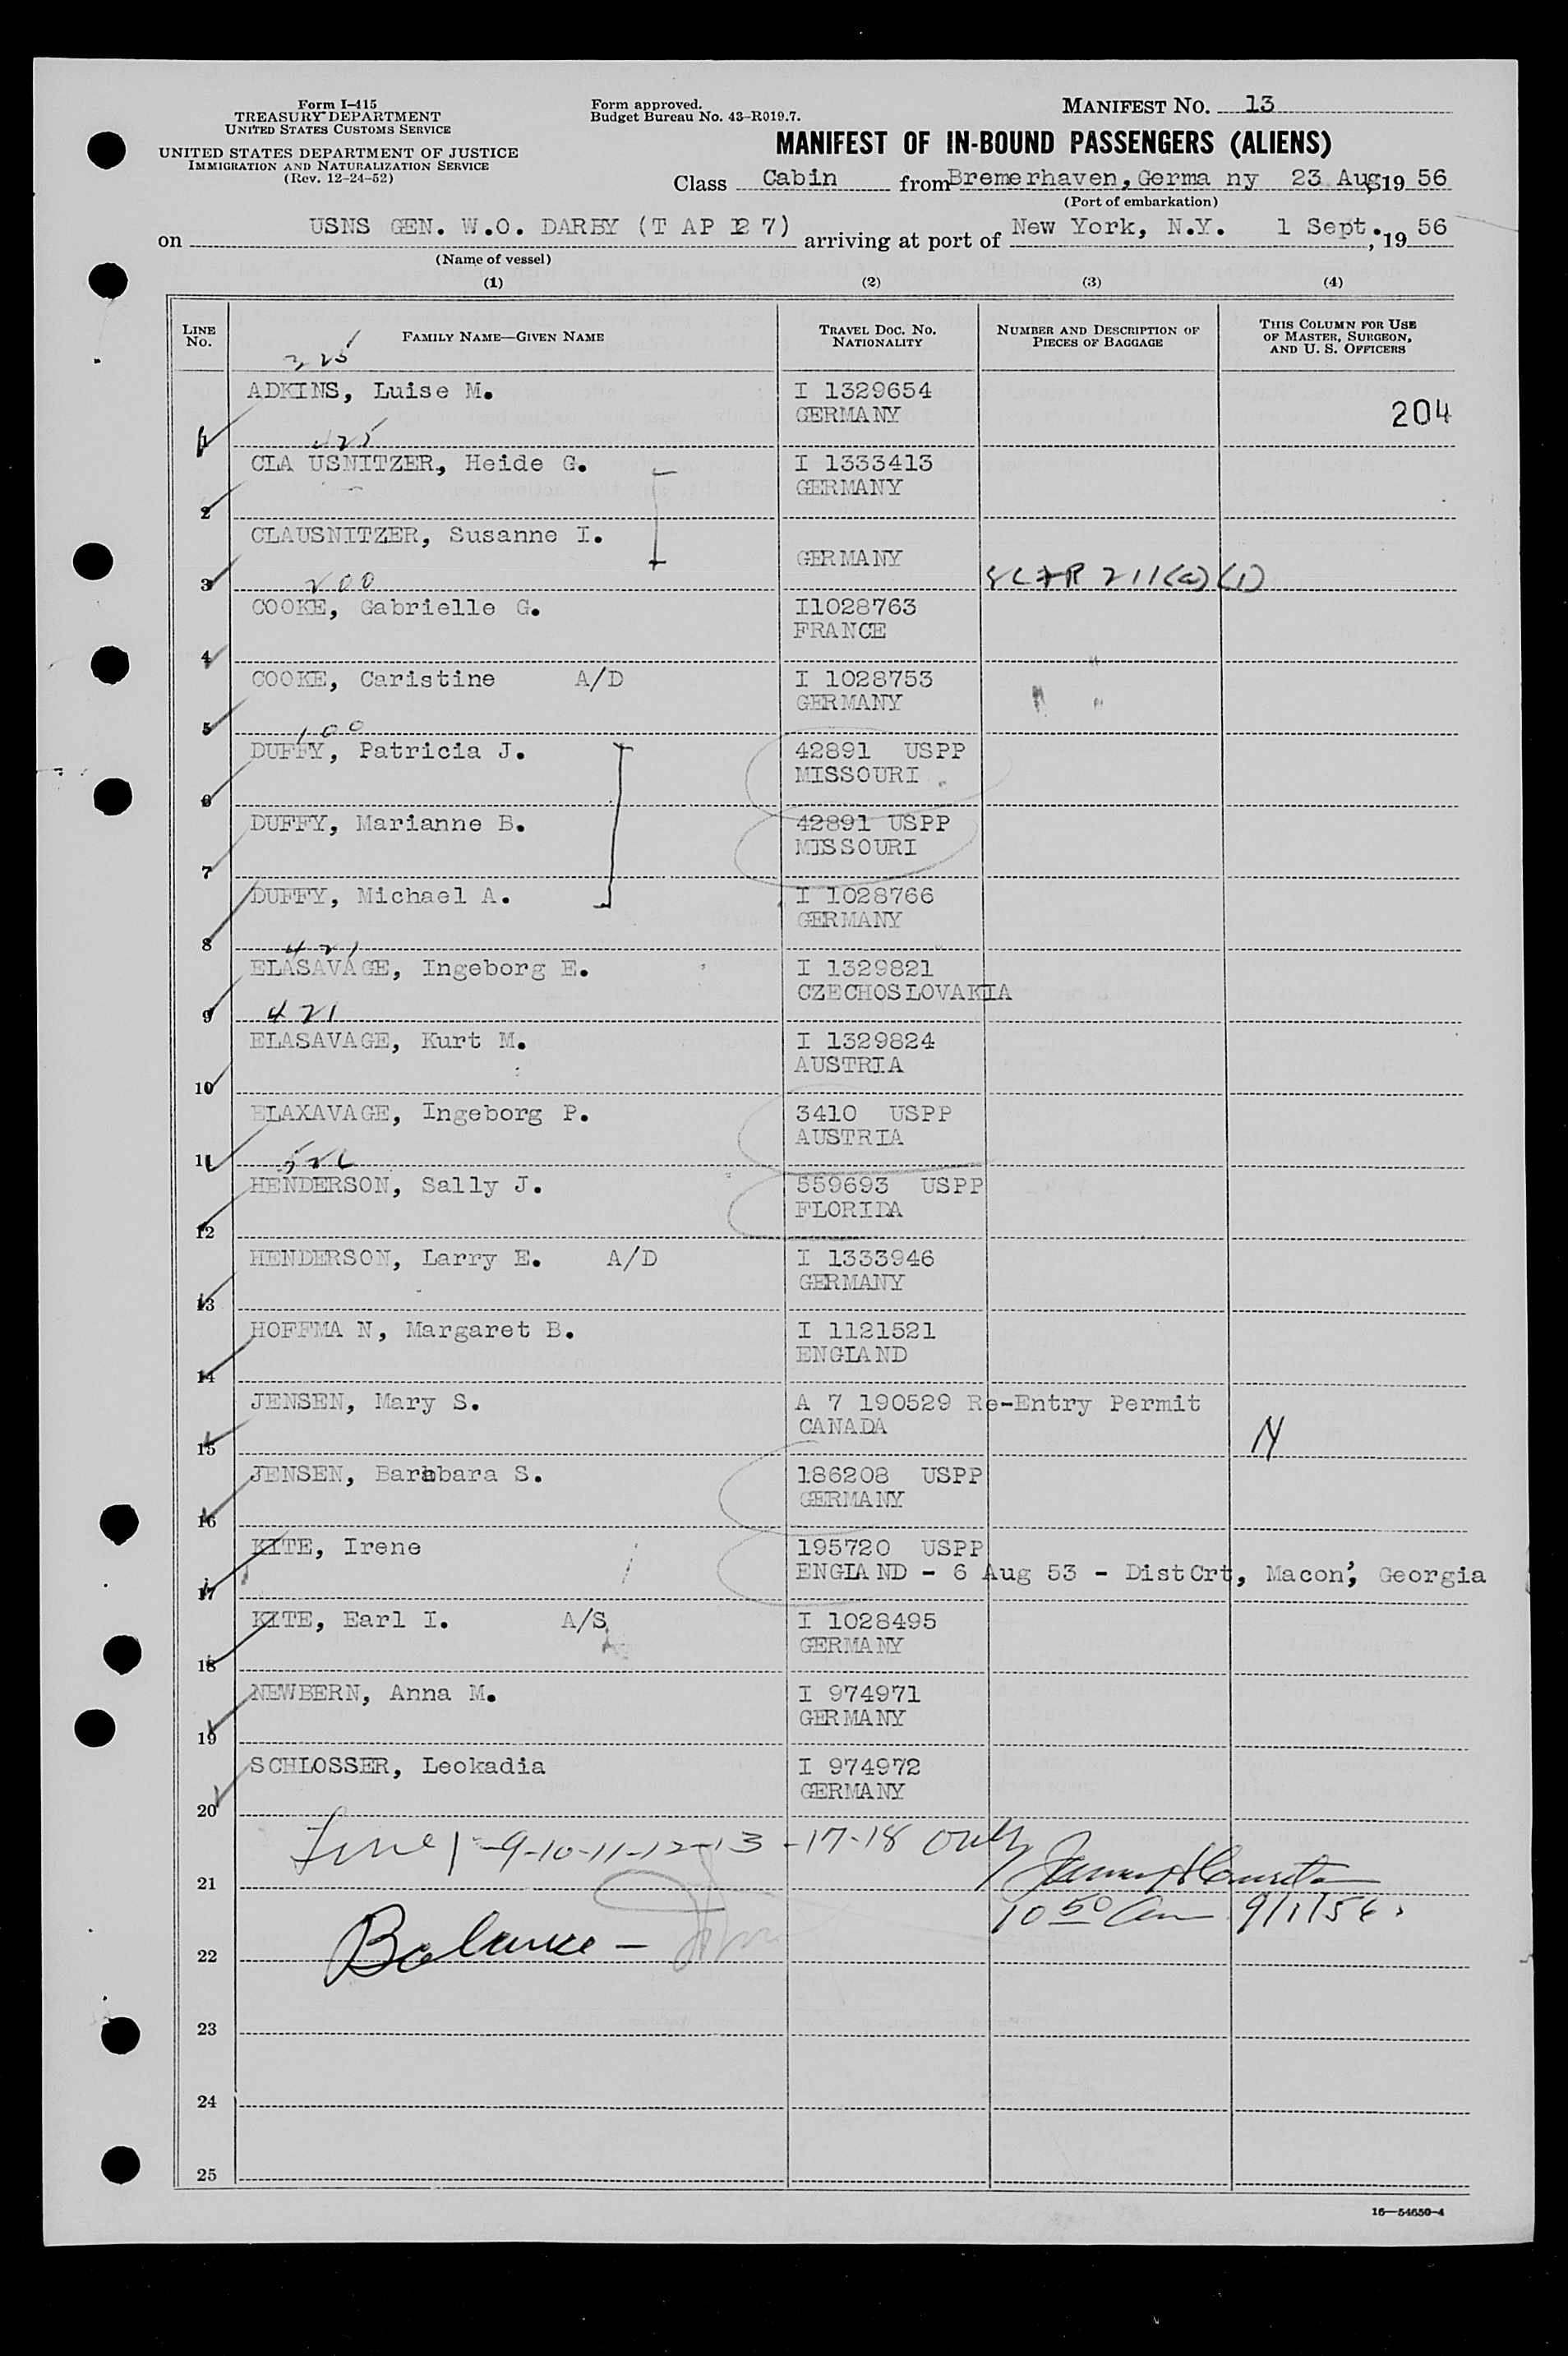 Form I-415
TREASURY DEPARTMENT
UNITED STATES CUSTOMS SERVICE
UNITED STATES DEPARTMENT OF JUSTICE
IMMIGRATION AND NATURALIZATION SERVICE
(Rev. 12-24-52)
Form approved.
Budget Bureau No. 43-R019.7.
MANIFEST NO. 13
MANIFEST OF IN-BOUND PASSENGERS (ALIENS)
Class Cabin from Bremerhaven, Germa ny 23 Aug, 19 56
(Port of embarkation)
on USNS GEN. W.O. DARBY (T AP 127) arriving at port of New York, N.Y. 1 Sept., 19 56
(Name of vessel)
(1) (2) (3) (4)
LINE NO. FAMILY NAME—GIVEN NAME TRAVEL DOC. NO. NATIONALITY NUMBER AND DESCRIPTION OF PIECES OF BAGGAGE THIS COLUMN FOR USE OF MASTER, SURGEON, AND U. S. OFFICERS
225
ADKINS, Luise M. I 1329654
GERMANY 204
1 425
CLA USNITZER, Heide G. I 1333413
GERMANY
2
CLAUSNITZER, Susanne I.
GERMANY
3 200 8 CFR 211(a)(1)
COOKE, Gabrielle G. I1028763
FRANCE
4
COOKE, Caristine A/D I 1028753
GERMANY
5 100
DUFFY, Patricia J. 42891 USPP
MISSOURI
6
DUFFY, Marianne B. 42891 USPP
MISSOURI
7
DUFFY, Michael A. I 1028766
GERMANY
8 421
ELASAVAGE, Ingeborg E. I 1329821
CZECHOSLOVAKIA
9 421
ELASAVAGE, Kurt M. I 1329824
AUSTRIA
10
ELAXAVAGE, Ingeborg P. 3410 USPP
AUSTRIA
11
HENDERSON, Sally J. 559693 USPP
FLORIDA
12
HENDERSON, Larry E. A/D I 1333946
GERMANY
13
HOFFMA N, Margaret B. I 1121521
ENGLAND
14
JENSEN, Mary S. A 7 190529 Re-Entry Permit
CANADA
15 N
JENSEN, Barbbara S. 186208 USPP
GERMANY
16
KITE, Irene 195720 USPP
ENGLA ND - 6 Aug 53 - Dist Crt, Macon, Georgia
17
KITE, Earl I. A/S I 1028495
GERMANY
18
NEWBERN, Anna M. I 974971
GERMANY
19
SCHLOSSER, Leokadia I 974972
GERMANY
20
Line 1-9-10-11-12-13-17-18 only
21
10 50 Am 9/1/56
Balance -
22
23
24
25
16—54650-4